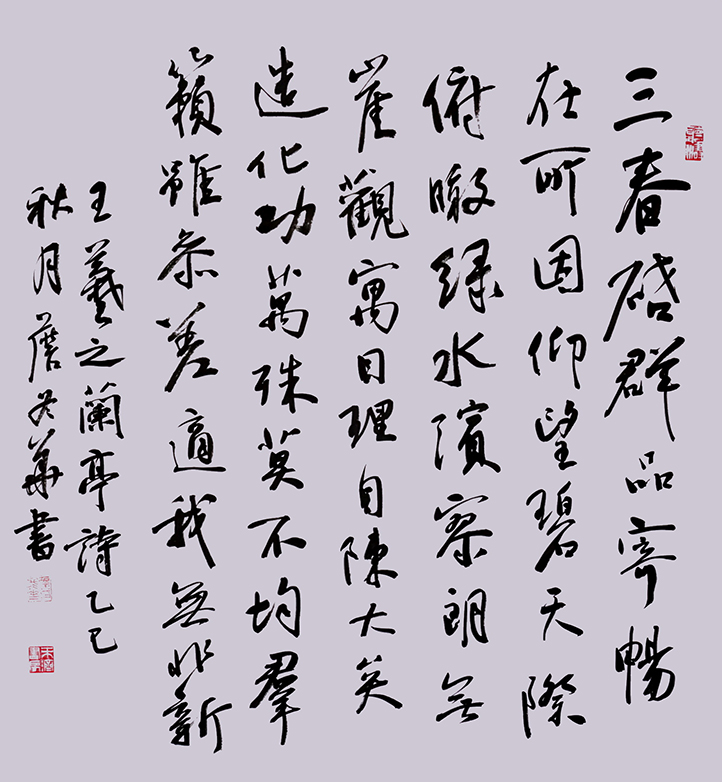 三春啟群品寄暢
在所因仰望碧天際
俯瞰緑水濱寥朗無
崖觀寓目理自陳大矣
造化功萬殊莫不均羣
籟雖參差適我無非新
王羲之蘭亭詩乙巳
秋月詹冬華書